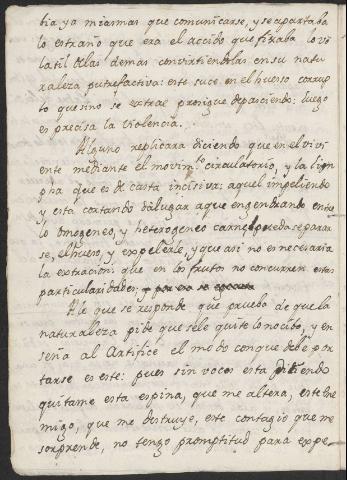 tia ya miasmas que comunicarse, y se apartaba
lo estraño que era el accido que fixaba lo vo
latil delas demas convirtiendolas en su natu
raleza putrefactiva: este suce. en el hueso corrup
to que sino se extrae prosigue depasciendo: luego
es precisa la violencia.
Alguno replicara diciendo que en el vivi
ente mediante el movim.to circulatorio, y la lim
pha que es de casta incisiva: aquel impeliendo
y esta cortando dà lugar a que engendrando entre
lo omogeneo, y heterogeneo carne pueda separar
se, el hueso, y expelerle, y que asi no es necesaria
la extraccion que en los frutos no concurren estas
particularidades,
A lo que se responde que prueba de que la
naturaleza pide que sele quite lo nocibo, y en
seña al Artifice el modo con que debe por
tarse es este: pues sin voces esta pidiendo
quitame esta espina, que me altera, este ene
migo, que me destruye, este contagio que me
sorprende, no tengo promptitud para expe